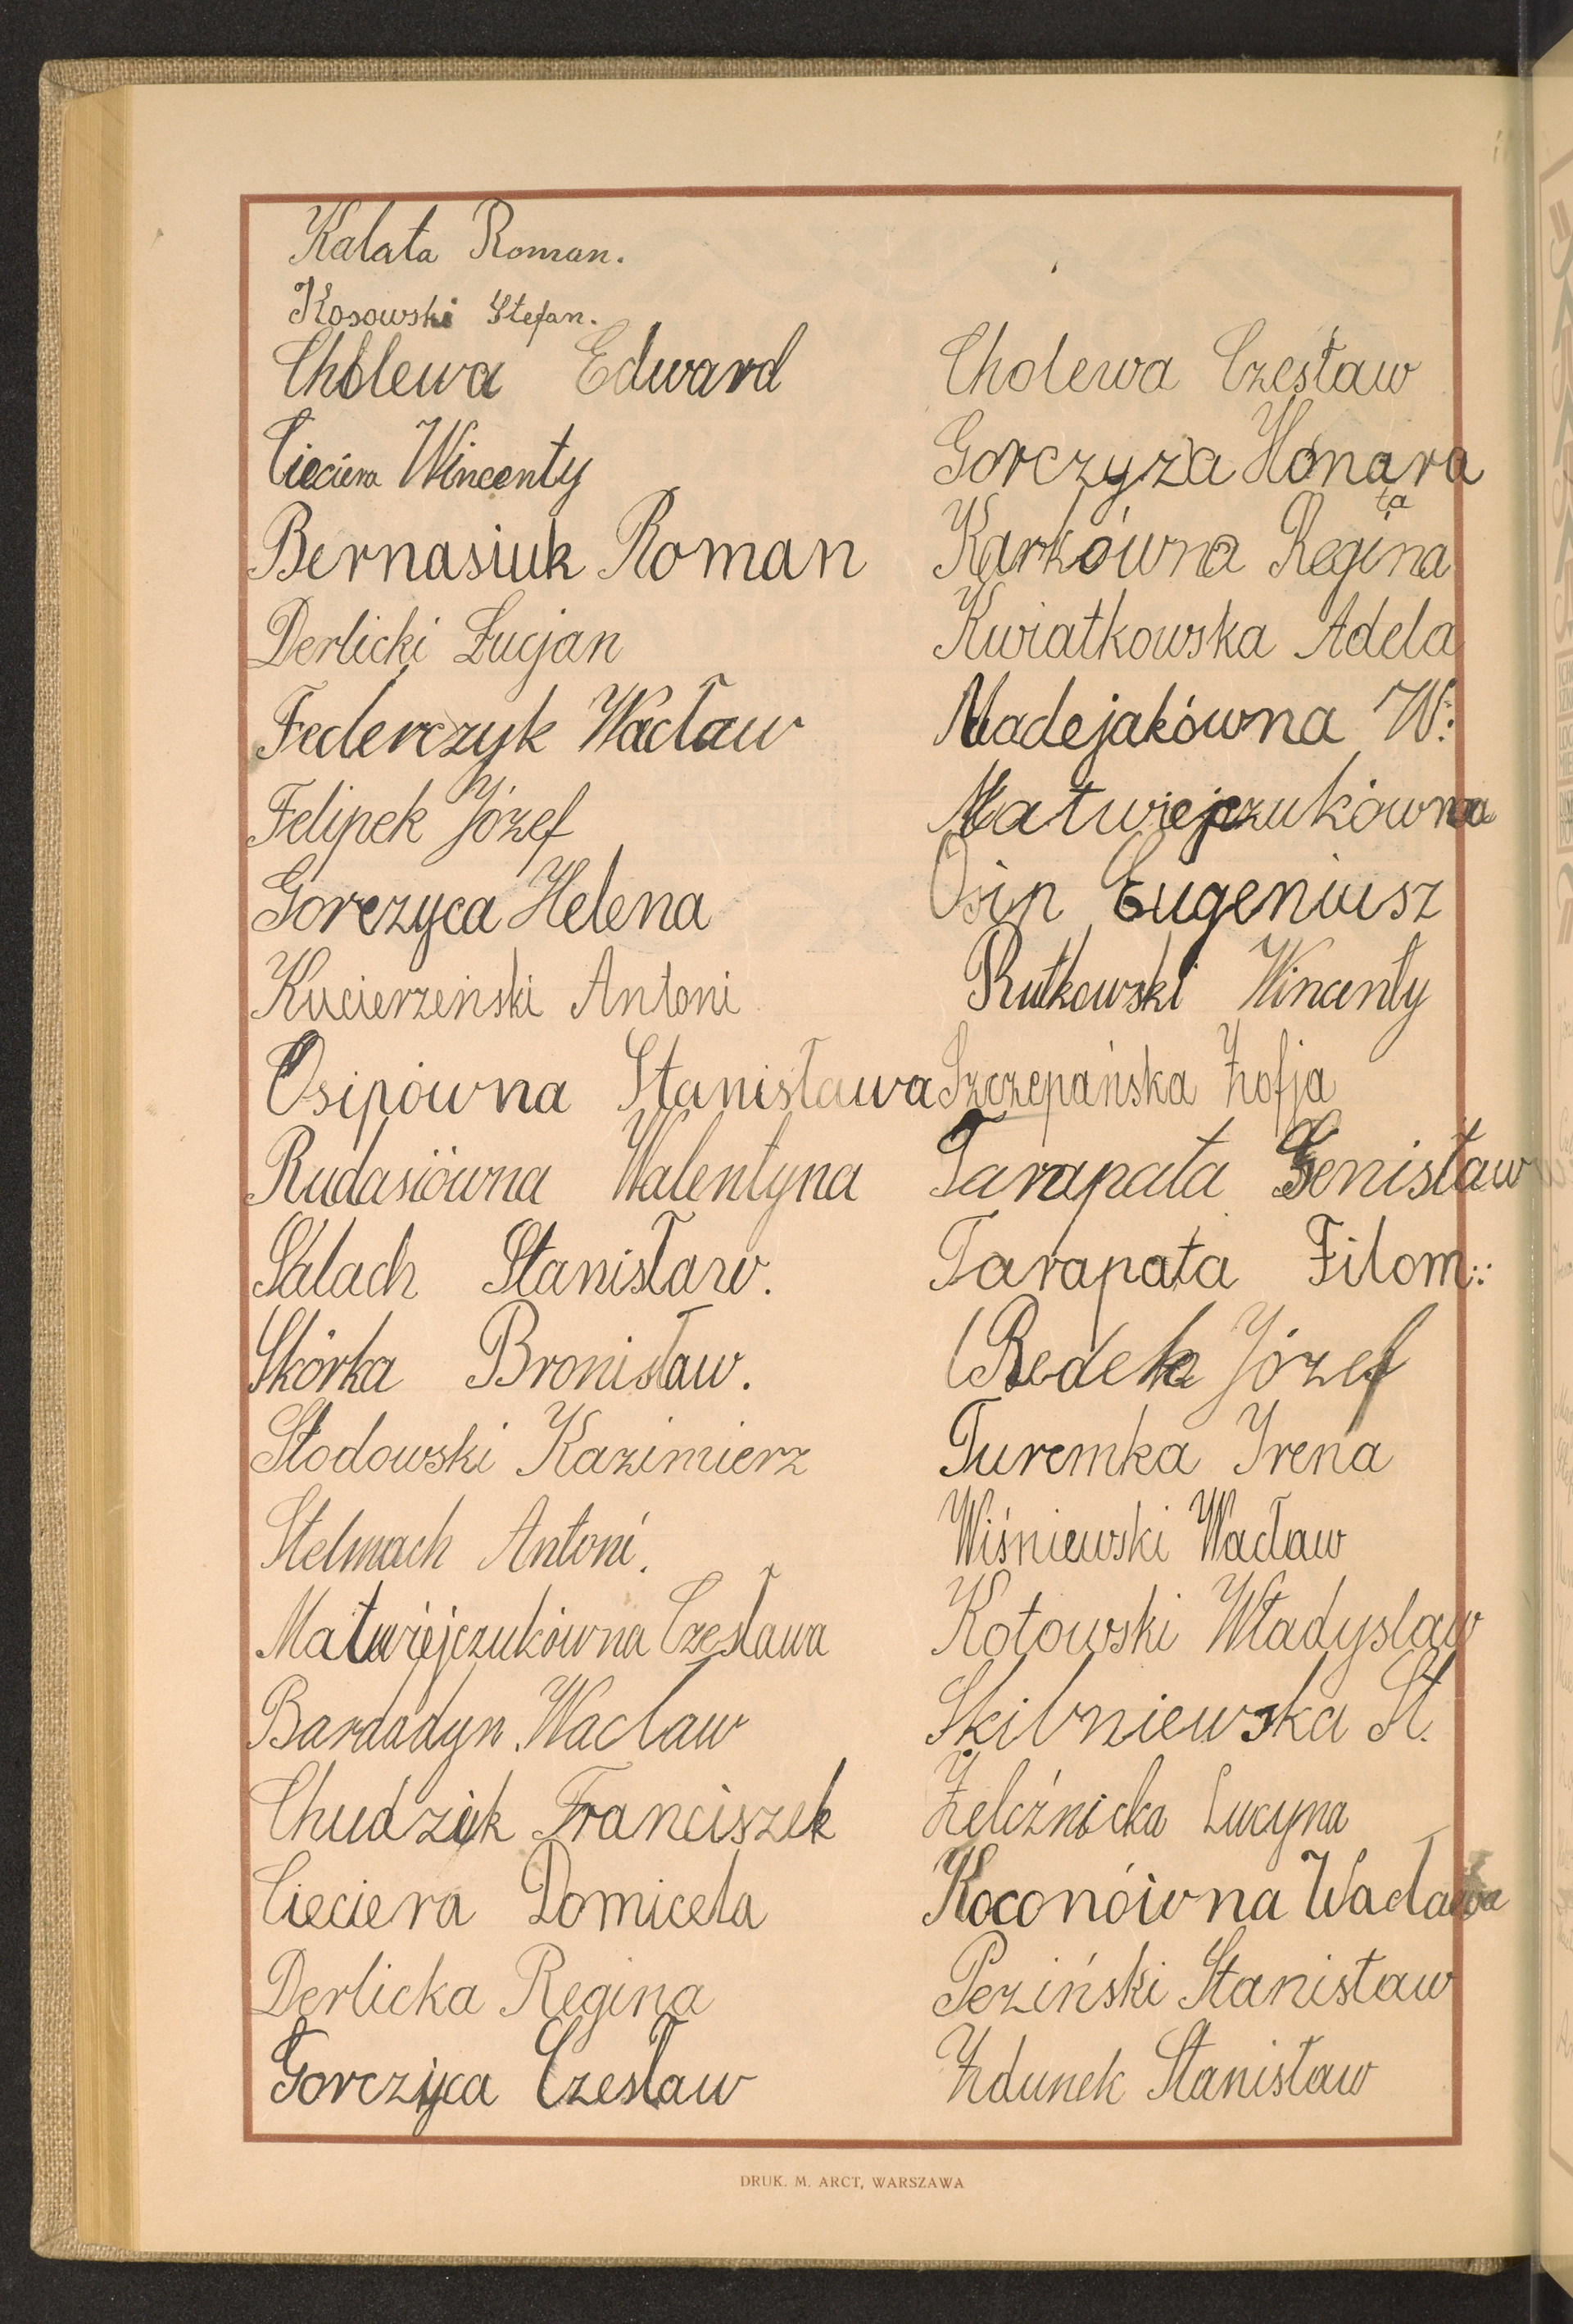 Kalata Roman.
Kosowski Stefan.
Cholewa Edward
Cieciera Wincenty
Bernasiuk Roman
Derlicki Łucjan
Federczyk Wacław
Felipek Józef
Gorczyca Helena
Kucierzeński Antoni
Osipówna Stanisława
Rudasiówna Walentyna
Sałach Stanisław.
Skórka Bronisław.
Słodowski Kazimierz
Stelmach Antoni.
Matwiejczukówna Czesława
Bardadyn Wacław
Chudzik Franciszek
Cieciera Domicela
Derlicka Regina
Gorczyca Czesław
Cholewa Czesław
Gorczyza Honara
ta
Karkówna Regina
Kwiatkowska Adela
Madejakówna W:
Matwiejczukówna
Osip Eugeniusz
Rutkowski Wincenty
Szczepańska Zofja
Tarapata Genisław
Tarapata Filom:
Redek Józef
Turemka Irena
Wiśniewski Wacław
Kotowski Władysław
Skibniewska St.
Żeleźnicka Lucyna
Koconówna Wacława
Peziński Stanisław
Zdunek Stanisław
DRUK. M. ARCT, WARSZAWA